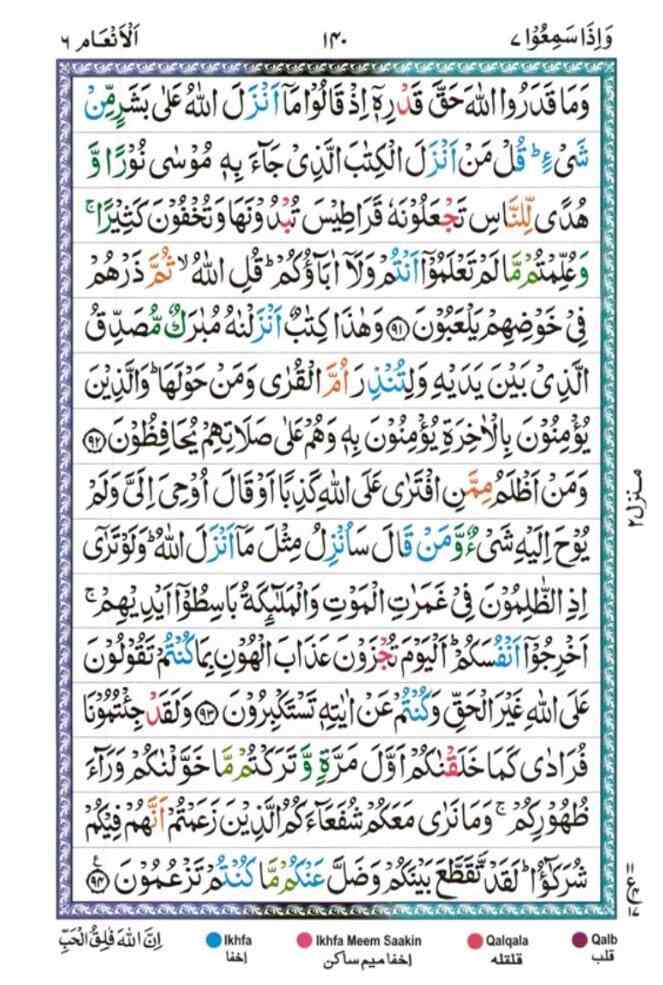 وَاِذَا سَمِعُوْا ٧ ١٤٠ اَلْاَنْعَام ٦
وَمَا قَدَرُوا اللّٰهَ حَقَّ قَدْرِهٖۤ اِذْ قَالُوْا مَاۤ اَنْزَلَ اللّٰهُ عَلٰى بَشَرٍ مِّنْ
شَیْءٍ ؕ قُلْ مَنْ اَنْزَلَ الْكِتٰبَ الَّذِیْ جَآءَ بِهٖ مُوْسٰى نُوْرًا وَّ
هُدًى لِّلنَّاسِ تَجْعَلُوْنَهٗ قَرَاطِیْسَ تُبْدُوْنَهَا وَتُخْفُوْنَ كَثِیْرًا ۚ
وَعُلِّمْتُمْ مَّا لَمْ تَعْلَمُوْۤا اَنْتُمْ وَلَاۤ اٰبَآؤُكُمْ ؕ قُلِ اللّٰهُ ۙ ثُمَّ ذَرْهُمْ
فِیْ خَوْضِهِمْ یَلْعَبُوْنَ ﴿٩١﴾ وَهٰذَا كِتٰبٌ اَنْزَلْنٰهُ مُبٰرَكٌ مُّصَدِّقُ
الَّذِیْ بَیْنَ یَدَیْهِ وَلِتُنْذِرَ اُمَّ الْقُرٰى وَمَنْ حَوْلَهَا ؕ وَالَّذِیْنَ
یُؤْمِنُوْنَ بِالْاٰخِرَةِ یُؤْمِنُوْنَ بِهٖ وَهُمْ عَلٰى صَلَاتِهِمْ یُحَافِظُوْنَ ﴿٩٢﴾
وَمَنْ اَظْلَمُ مِمَّنِ افْتَرٰى عَلَى اللّٰهِ كَذِبًا اَوْ قَالَ اُوْحِیَ اِلَیَّ وَلَمْ
یُوْحَ اِلَیْهِ شَیْءٌ وَّمَنْ قَالَ سَاُنْزِلُ مِثْلَ مَاۤ اَنْزَلَ اللّٰهُ ؕ وَلَوْ تَرٰۤى
اِذِ الظّٰلِمُوْنَ فِیْ غَمَرٰتِ الْمَوْتِ وَالْمَلٰٓئِكَةُ بَاسِطُوْۤا اَیْدِیْهِمْ ۚ
اَخْرِجُوْۤا اَنْفُسَكُمْ ؕ اَلْیَوْمَ تُجْزَوْنَ عَذَابَ الْهُوْنِ بِمَا كُنْتُمْ تَقُوْلُوْنَ
عَلَى اللّٰهِ غَیْرَ الْحَقِّ وَكُنْتُمْ عَنْ اٰیٰتِهٖ تَسْتَكْبِرُوْنَ ﴿٩٣﴾ وَلَقَدْ جِئْتُمُوْنَا
فُرَادٰى كَمَا خَلَقْنٰكُمْ اَوَّلَ مَرَّةٍ وَّ تَرَكْتُمْ مَّا خَوَّلْنٰكُمْ وَرَآءَ
ظُهُوْرِكُمْ ۚ وَمَا نَرٰى مَعَكُمْ شُفَعَآءَكُمُ الَّذِیْنَ زَعَمْتُمْ اَنَّهُمْ فِیْكُمْ
شُرَكٰٓؤُا ؕ لَقَدْ تَّقَطَّعَ بَیْنَكُمْ وَضَلَّ عَنْكُمْ مَّا كُنْتُمْ تَزْعُمُوْنَ ﴿٩٤﴾ ع
منزل ٢
اِنَّ اللّٰهَ فَلِقُ الْحَبِّ
Ikhfa
اخفا
Ikhfa Meem Saakin
اخفا میم ساکن
Qalqala
قلقله
Qalb
قلب